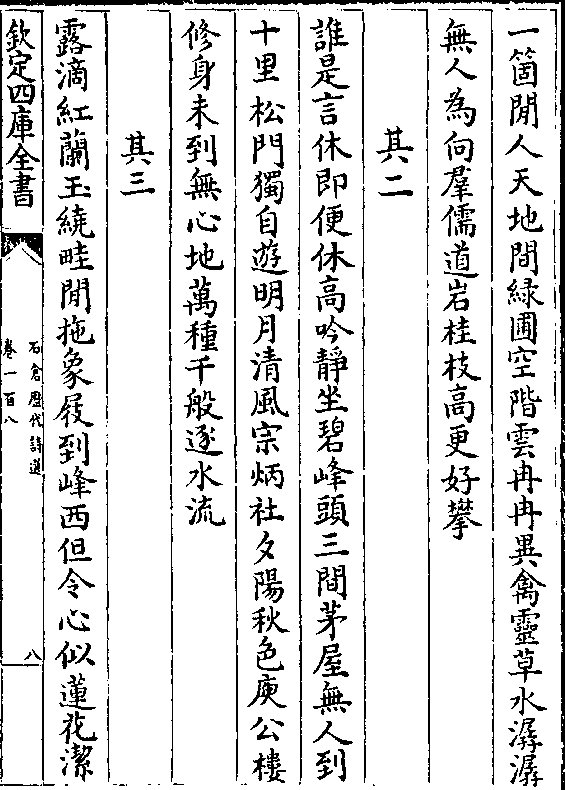 一箇閒人天地間緑圃空階雲冉冉異禽靈草水潺潺
無人為向羣儒道岩桂枝高更好攀
其二
誰是言休即便休高吟靜坐碧峰頭三間茅屋無人到
十里松門獨自遊明月清風宗炳社夕陽秋色庾公樓
修身未到無心地萬種千般逐水流
其三
露滴紅蘭玉繞畦閒拖象屐到峰西但令心似蓮花潔
欽定四庫全書
石倉歷代詩選
卷一百八
八